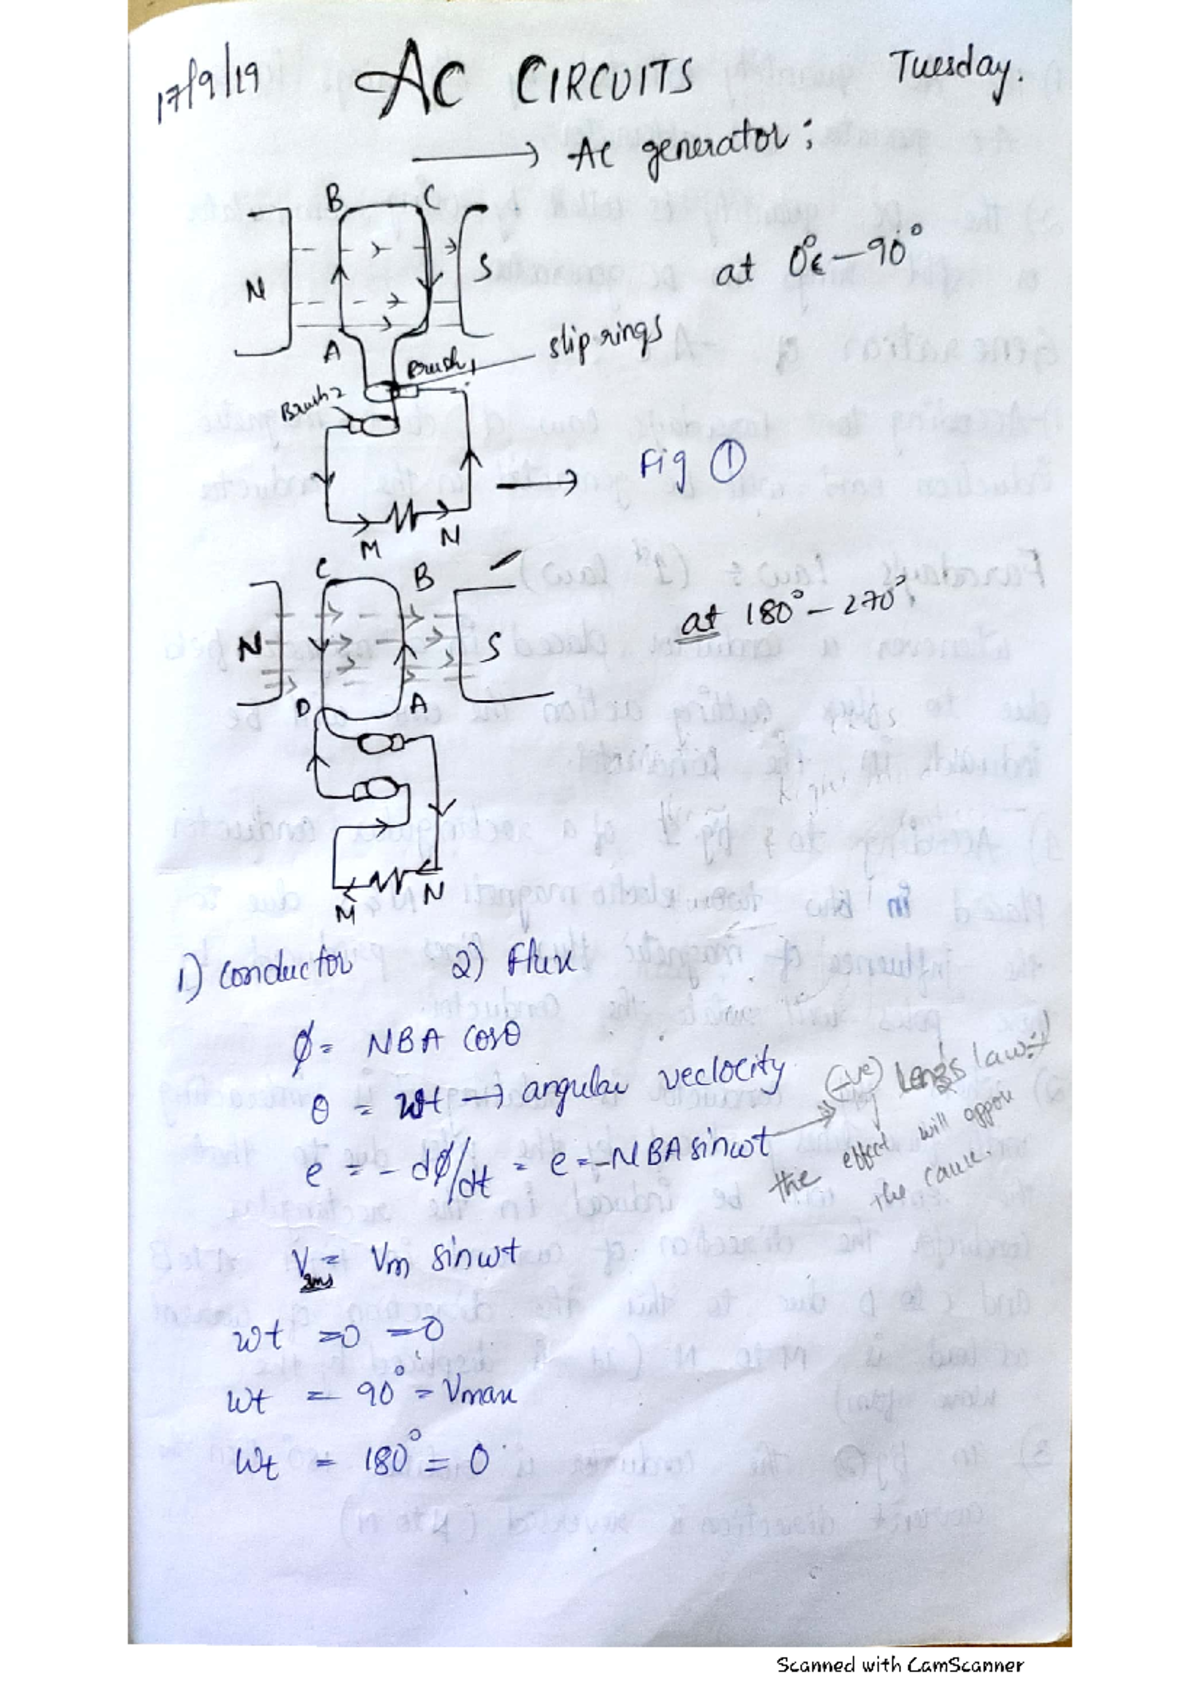 17/9/19 AC CIRCUITS Tuesday.
→ AC generator :
B C
N S
at 0°-90°
A
Brush 1 slip rings
Brush 2
Fig ①
M N
C B
N S
at 180° - 270°
D A
M N
1) conductor 2) Flux
ϕ = NBA cosθ
θ = ωt → angular veclocity
e = - dϕ/dt = e = -NBA sinωt → (-ve) Lenz's law :-)
the effect will oppose
the cause.
V = Vm sinωt
ωt = 0 = 0
ωt = 90° = Vmax
ωt = 180° = 0
Scanned with CamScanner